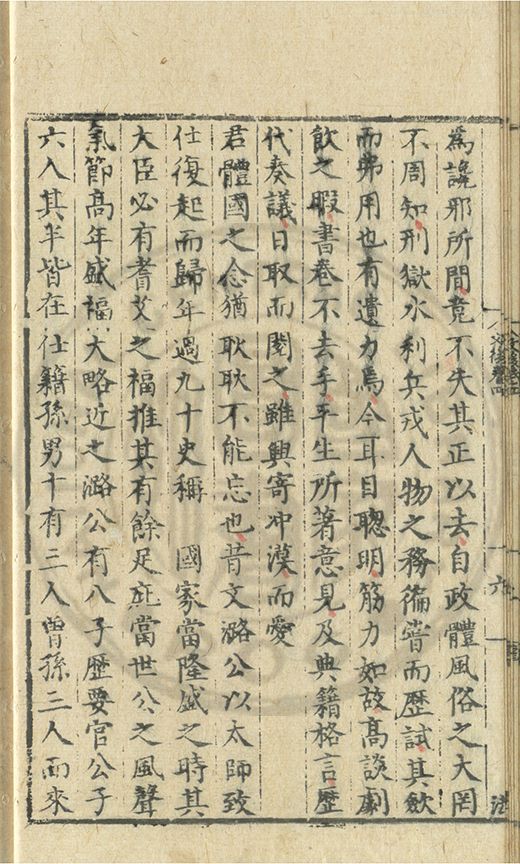 為讒邪所間竟不失其正以去自政體風俗之大罔
不周知刑獄水利兵戎人物之務徧嘗而歷試其歛
而弗用也有遺力焉今耳目聰明筋力如故高談劇
飲之暇書卷不去手平生所著意見及典籍格言歷
代奏議日取而閱之雖興寄冲漠而愛
君體國之念猶耿耿不能忘也昔文潞公以太師致
仕復起而歸年過九十史稱　國家當隆盛之時其
大臣必有耆艾之福推其有餘足庇當世公之風聲
氣節高年盛福大略近之潞公有八子歷要官公子
六人其半皆在仕籍孫男十有三人曾孫三人而來
六